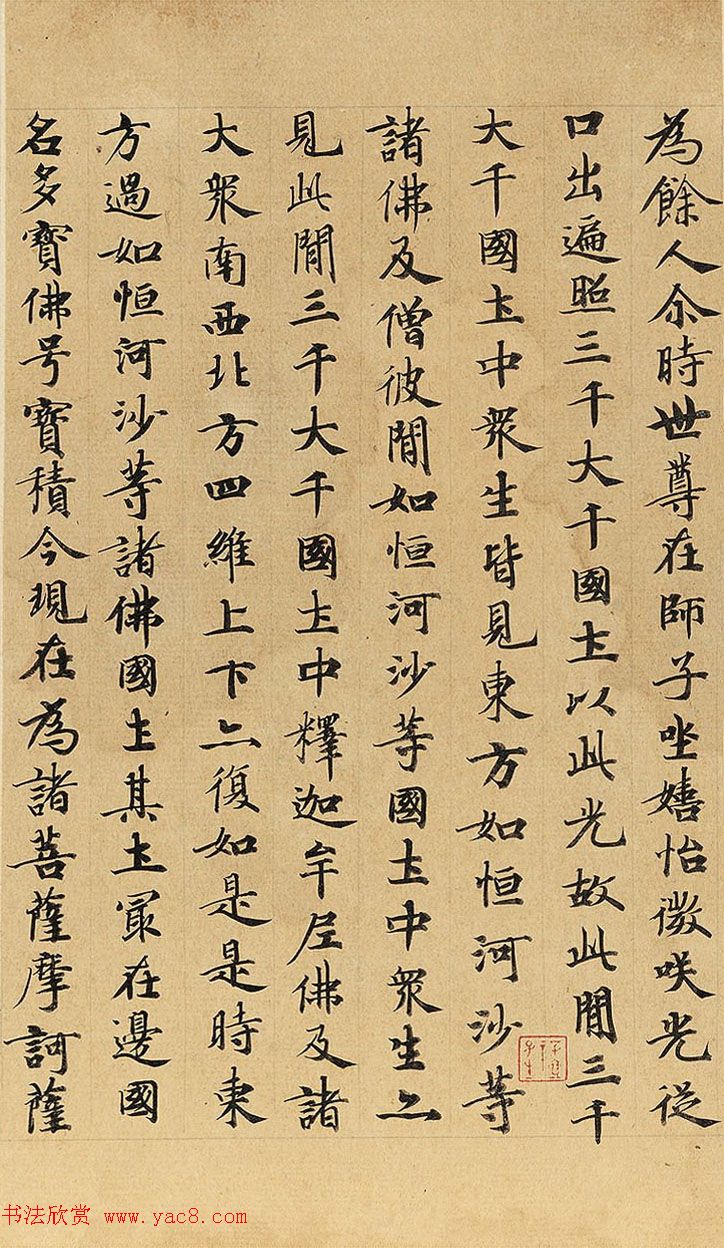 為餘人尒時世尊在師子坐嬉怡微咲光從
口出遍照三千大千國土以此光故此閒三千
大千國土中眾生皆見東方如恒河沙等
諸佛及僧彼閒如恒河沙等國土中眾生亦
見此閒三千大千國土中釋迦牟尼佛及諸
大眾南西北方四維上下亦復如是是時東
方過如恒河沙等諸佛國土其土冣在邊國
名多寶佛号寶積今現在為諸菩薩摩訶薩
书法欣赏 www.yac8.com